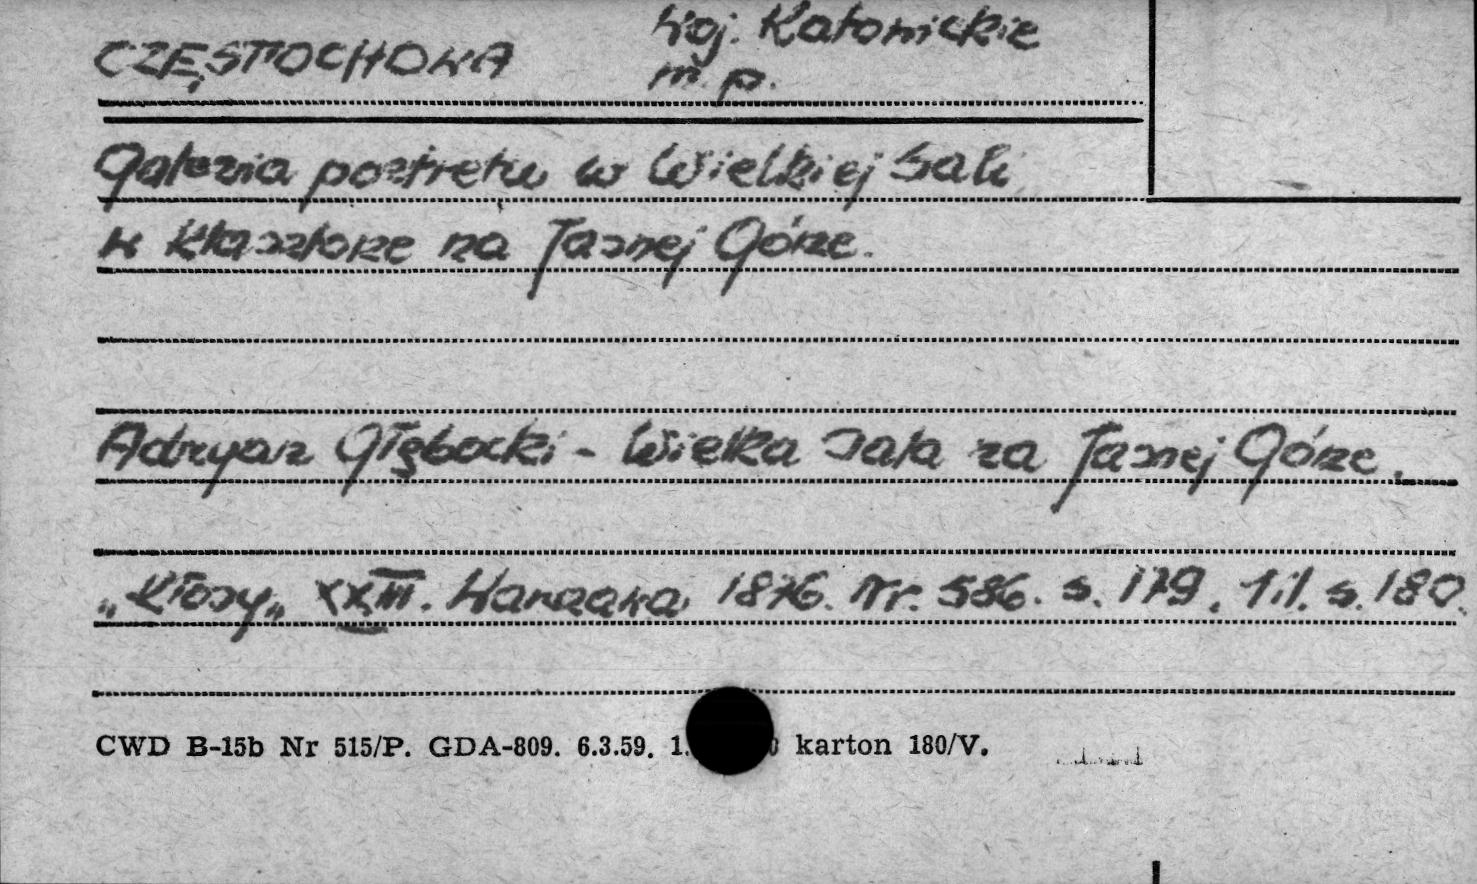 CZĘSTOCHOWA
Woj. Katowickie
m. p.
Galeria portretów w Wielkiej Sali
w klasztorze na Jasnej Górze.
Adryan Głębocki - Wielka sala na Jasnej Górze.
„Kłosy„ XXIII. Warszawa 1876. Nr. 586. s. 179. 1 il. s. 180.
CWD B-15b Nr 515/P. GDA-809. 6.3.59. 1. karton 180/V.